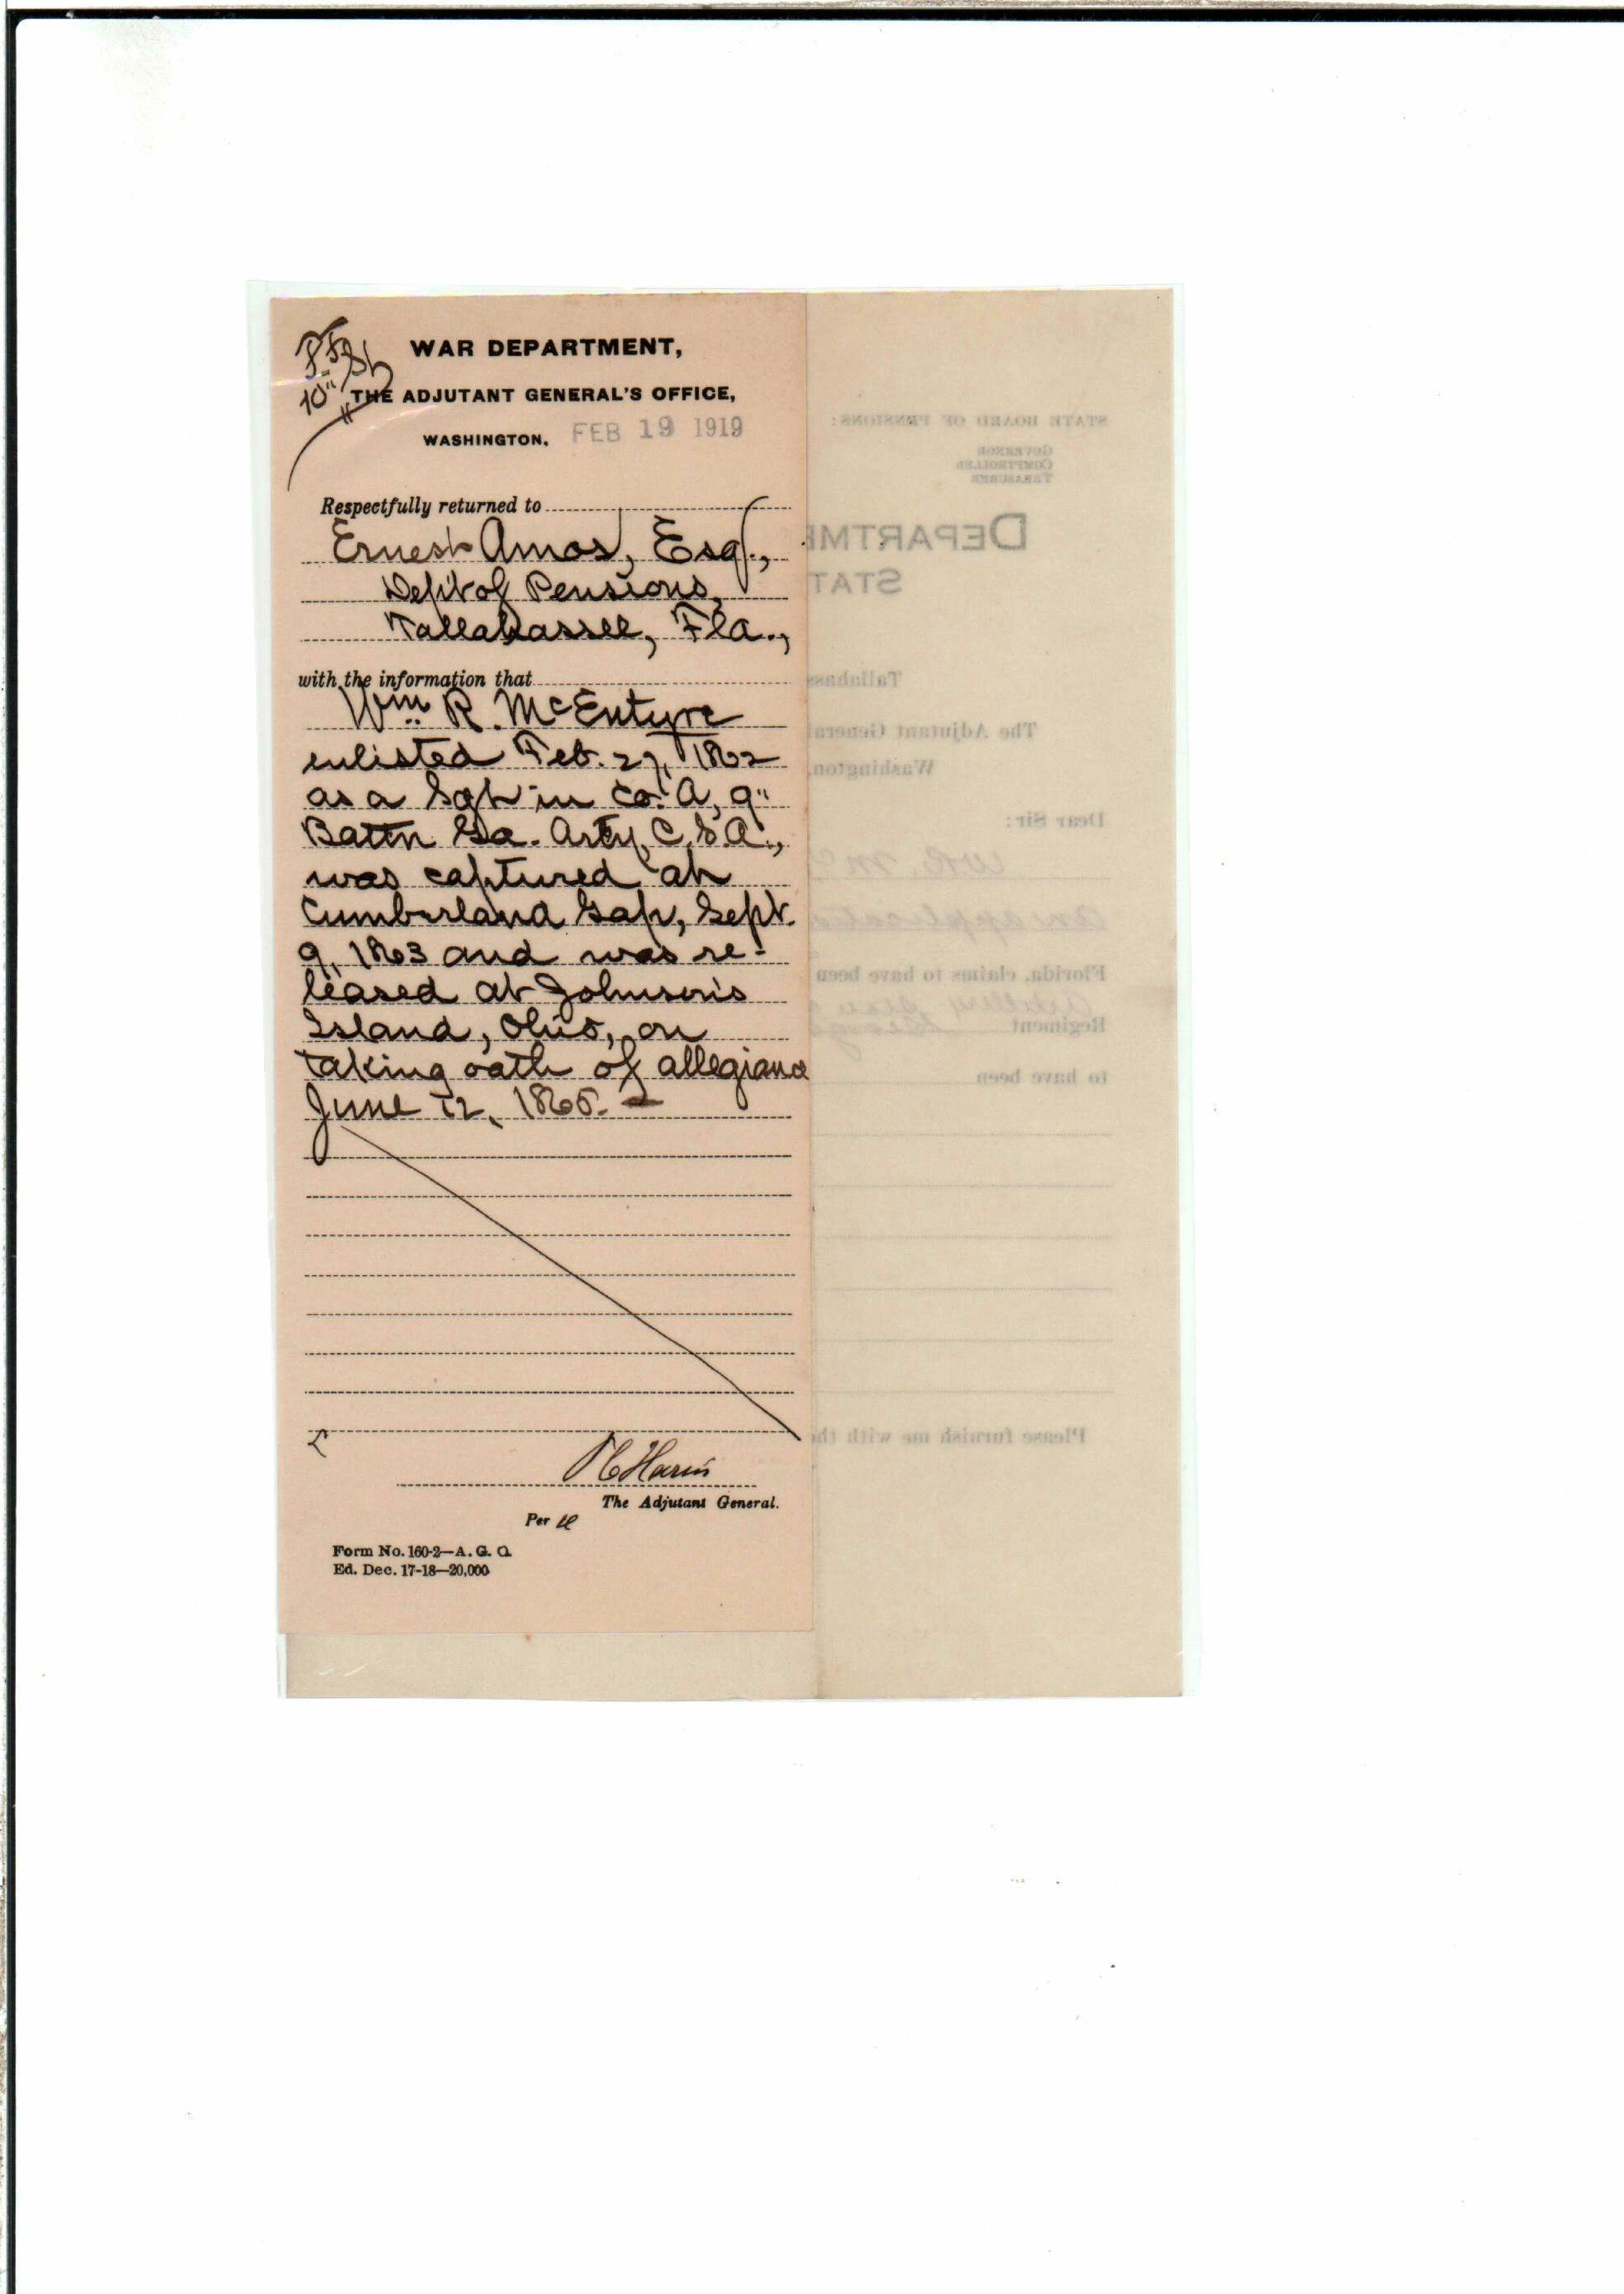 WAR DEPARTMENT,
THE ADJUTANT GENERAL'S OFFICE,
WASHINGTON, FEB 19 1919
Respectfully returned to
Ernest Amos, Esq.,
Dep't of Pensions,
Tallahassee, Fla.,
with the information that
Wm. R. McEntyre
enlisted Feb. 27, 1862
as a Sgt in Co. A, 9"
Battn Ga. Arty, C.S.A.,
was captured at
Cumberland Gap, Sept.
9, 1863 and was re-
leased at Johnson's
Island, Ohio, on
taking oath of allegiance
June 12, 1865.
The Adjutant General.
Per
Form No. 160-2—A. G. O.
Ed. Dec. 17-18—20,000
STATE BOARD OF PENSIONS:
GOVERNOR
COMPTROLLER
TREASURER
DEPARTME
STAT
Tallahass
The Adjutant General
Washington,
Dear Sir:
W.R. Mc
an applicatio
Florida, claims to have been
Regiment
to have been
Please furnish me with th